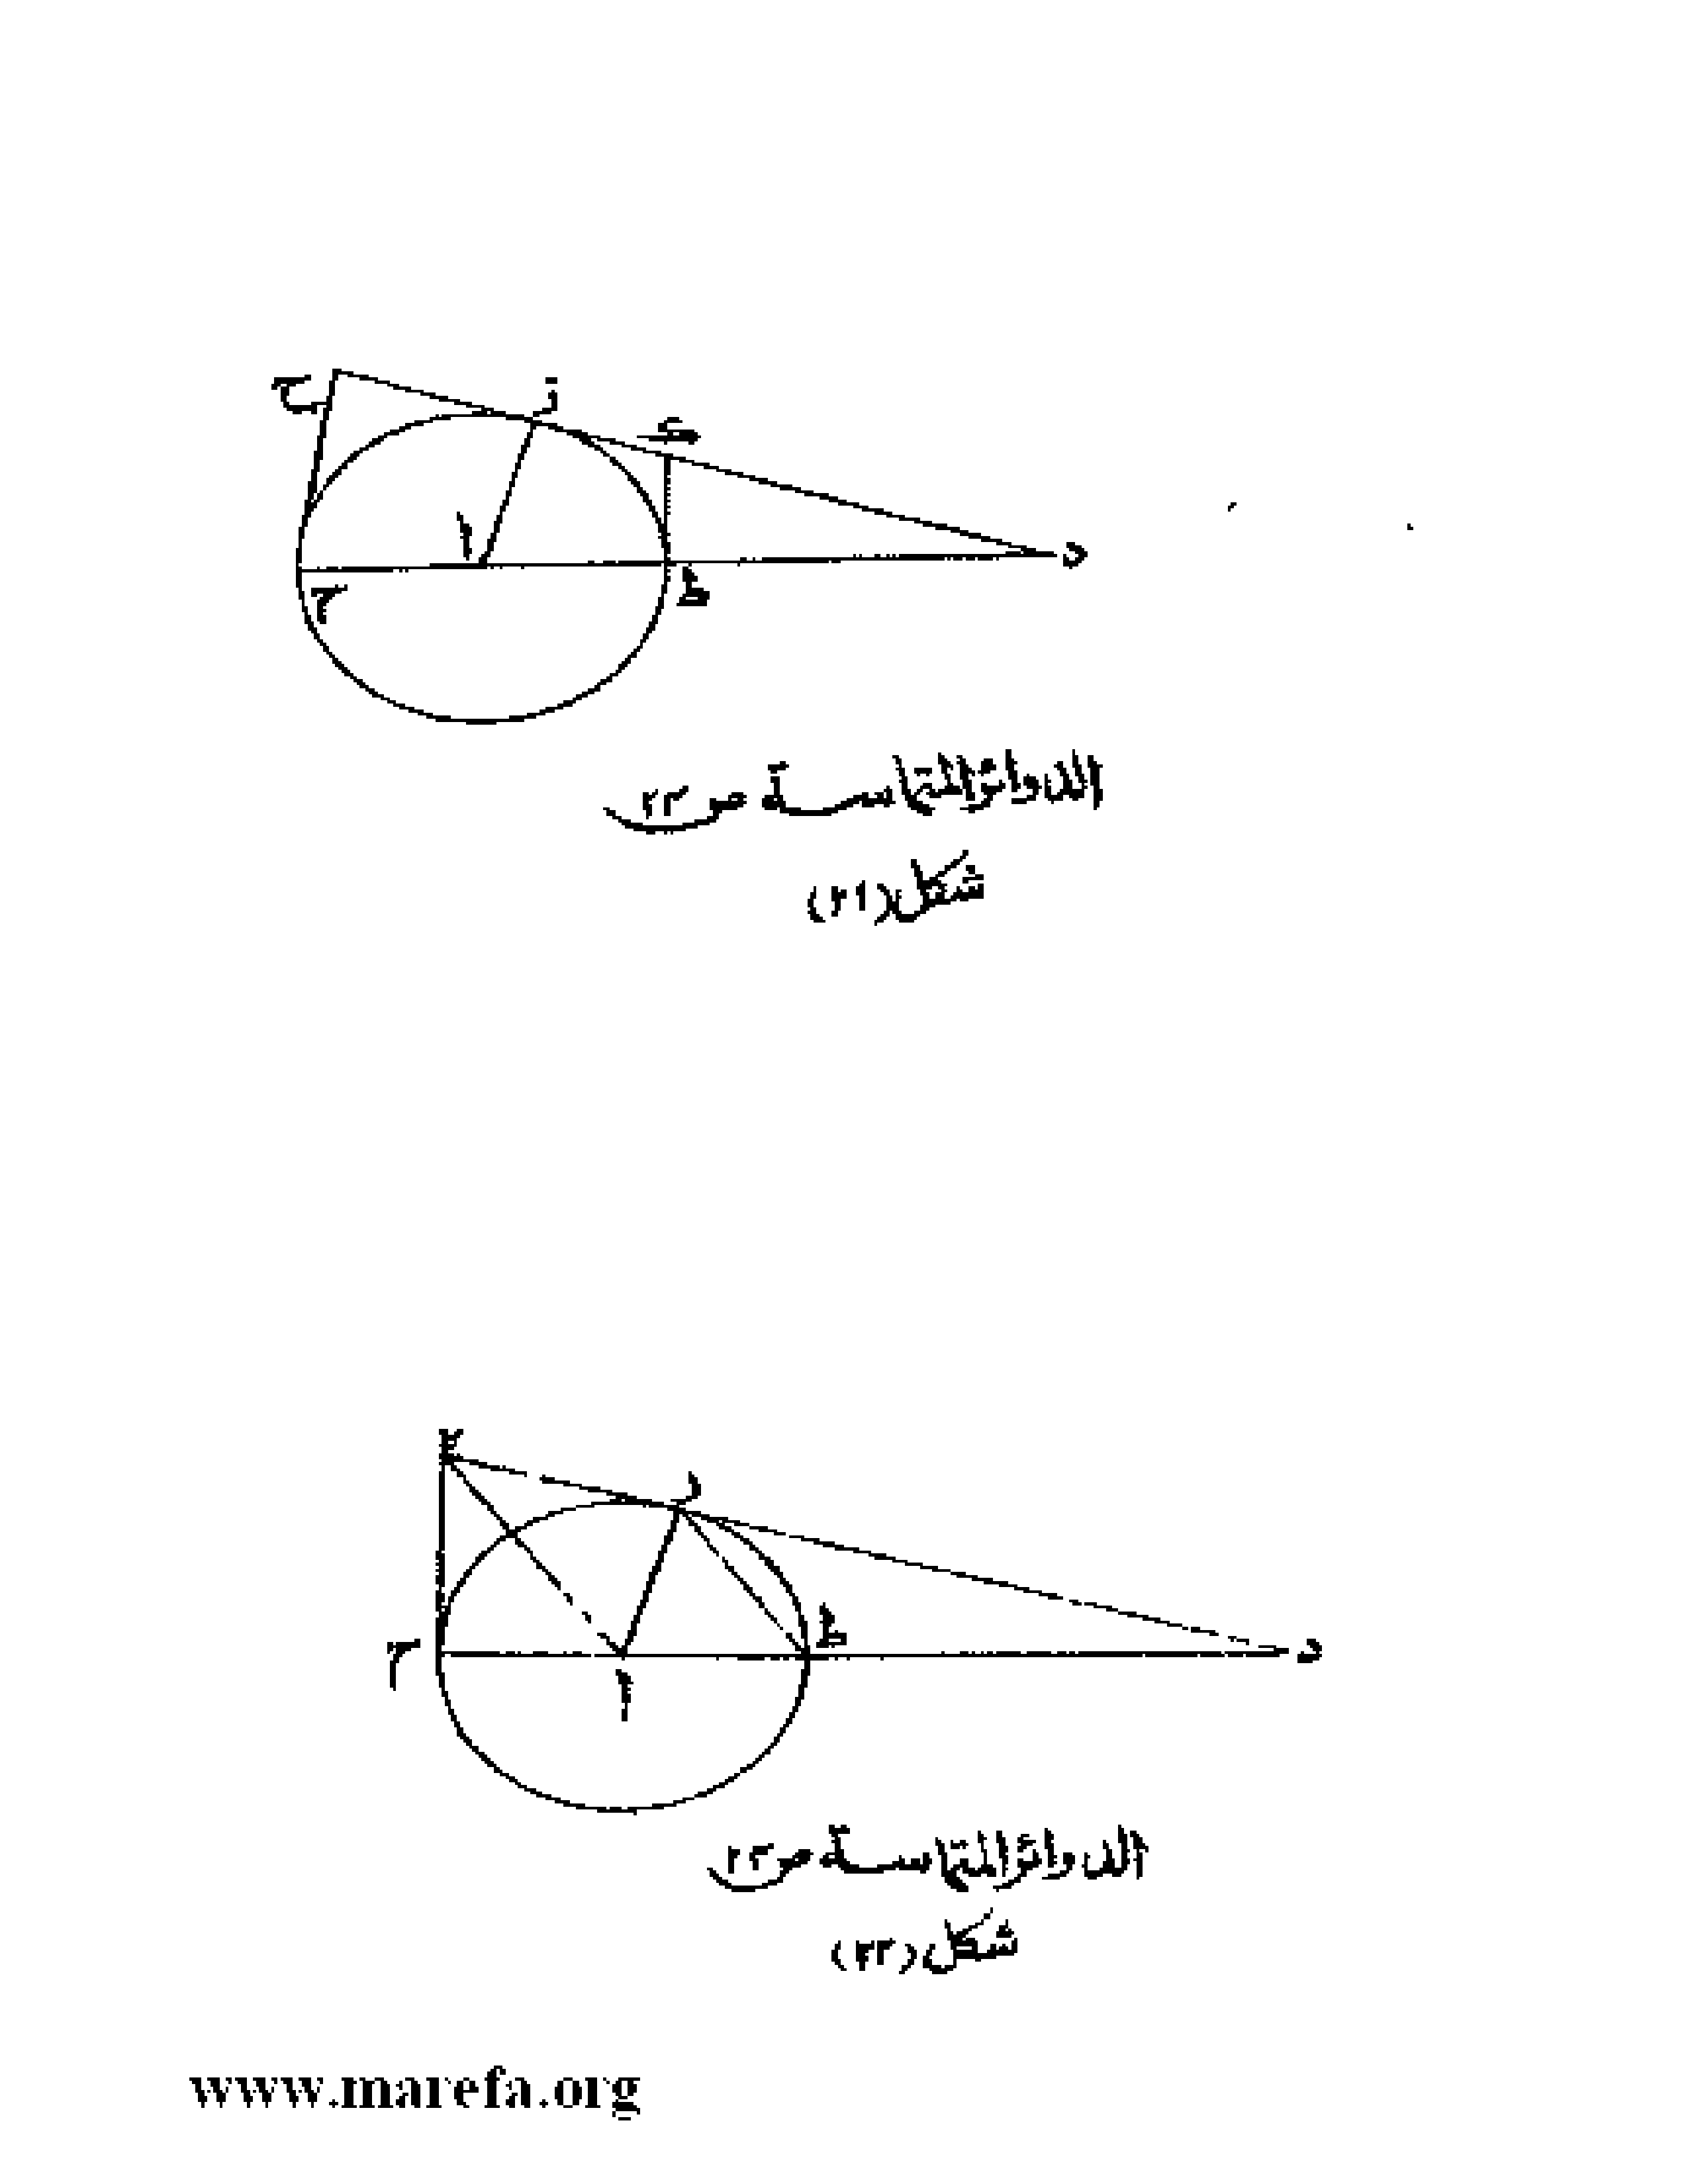 ز
ا
ط
د
الدوائر المتماسة ص ٢٣
شكل (٢١)
ا
ط
د
الدوائر المتماسة ص ٢٣
شكل (٢٢)
www.marefa.org